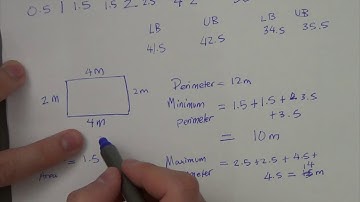 0.5 | 1.5 1.5 2 2.5
LB UB LB UB
41.5 42.5 34.5 35.5
4m
2m 2m
4m
Perimeter = 12m
Minimum = 1.5 + 1.5 + 3.5
perimeter + 3.5
= 10m
= 1.5
Maximum = 2.5 + 2.5 + 4.5 +
Perimeter 4.5 = 14 m